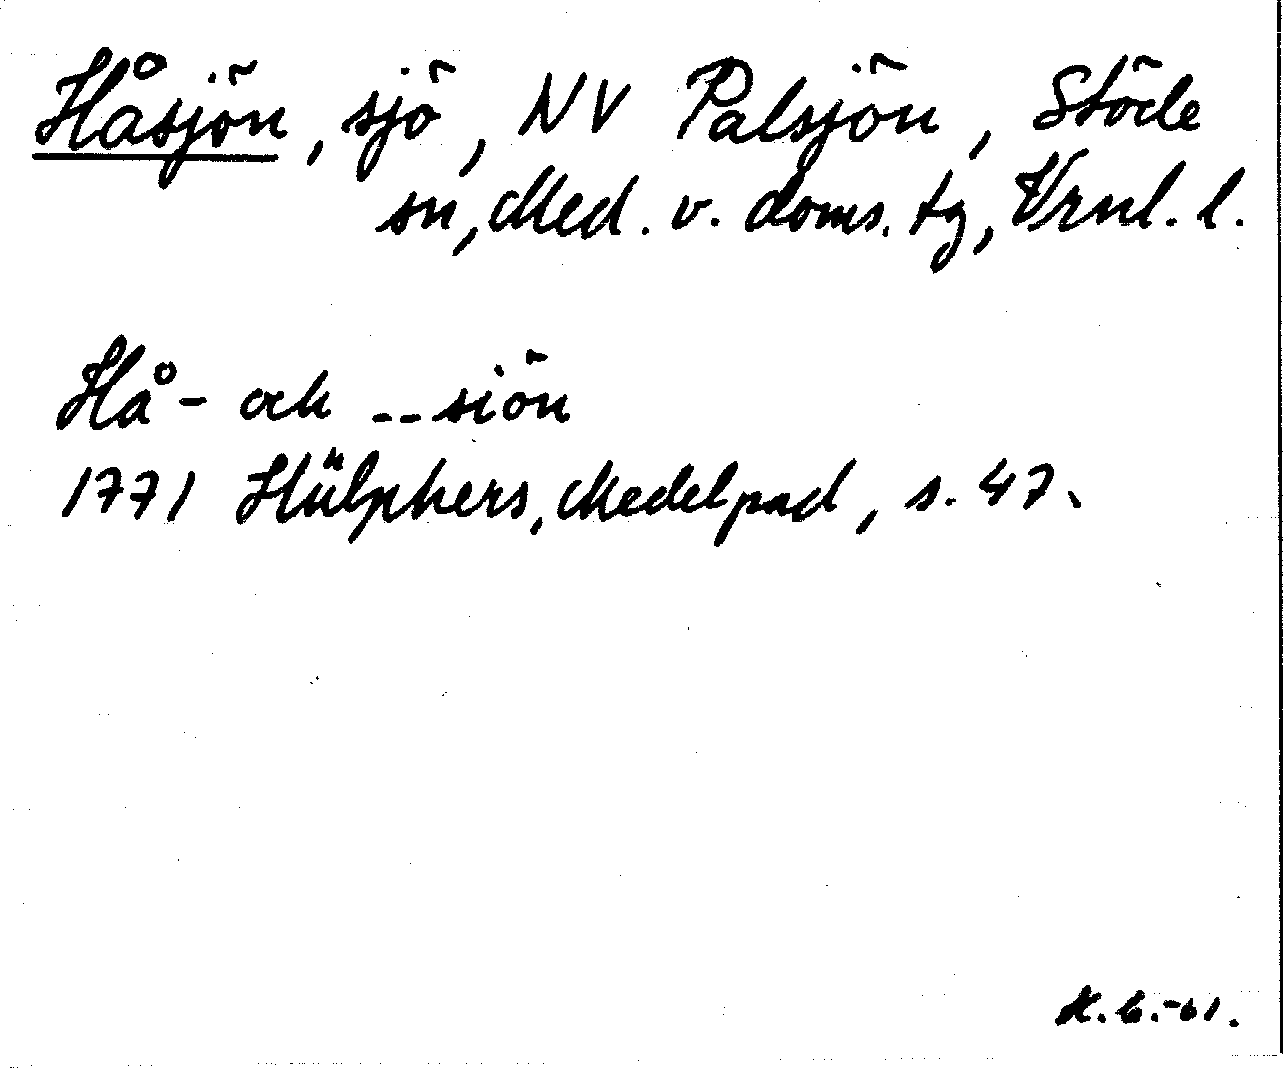 Håsjön, sjö, NV Palsjön, Stöde
sn, Med. v. doms. tg, Vrnl. l.
Hå- och --siön
1771 Hülphers, Medelpad, s. 47.